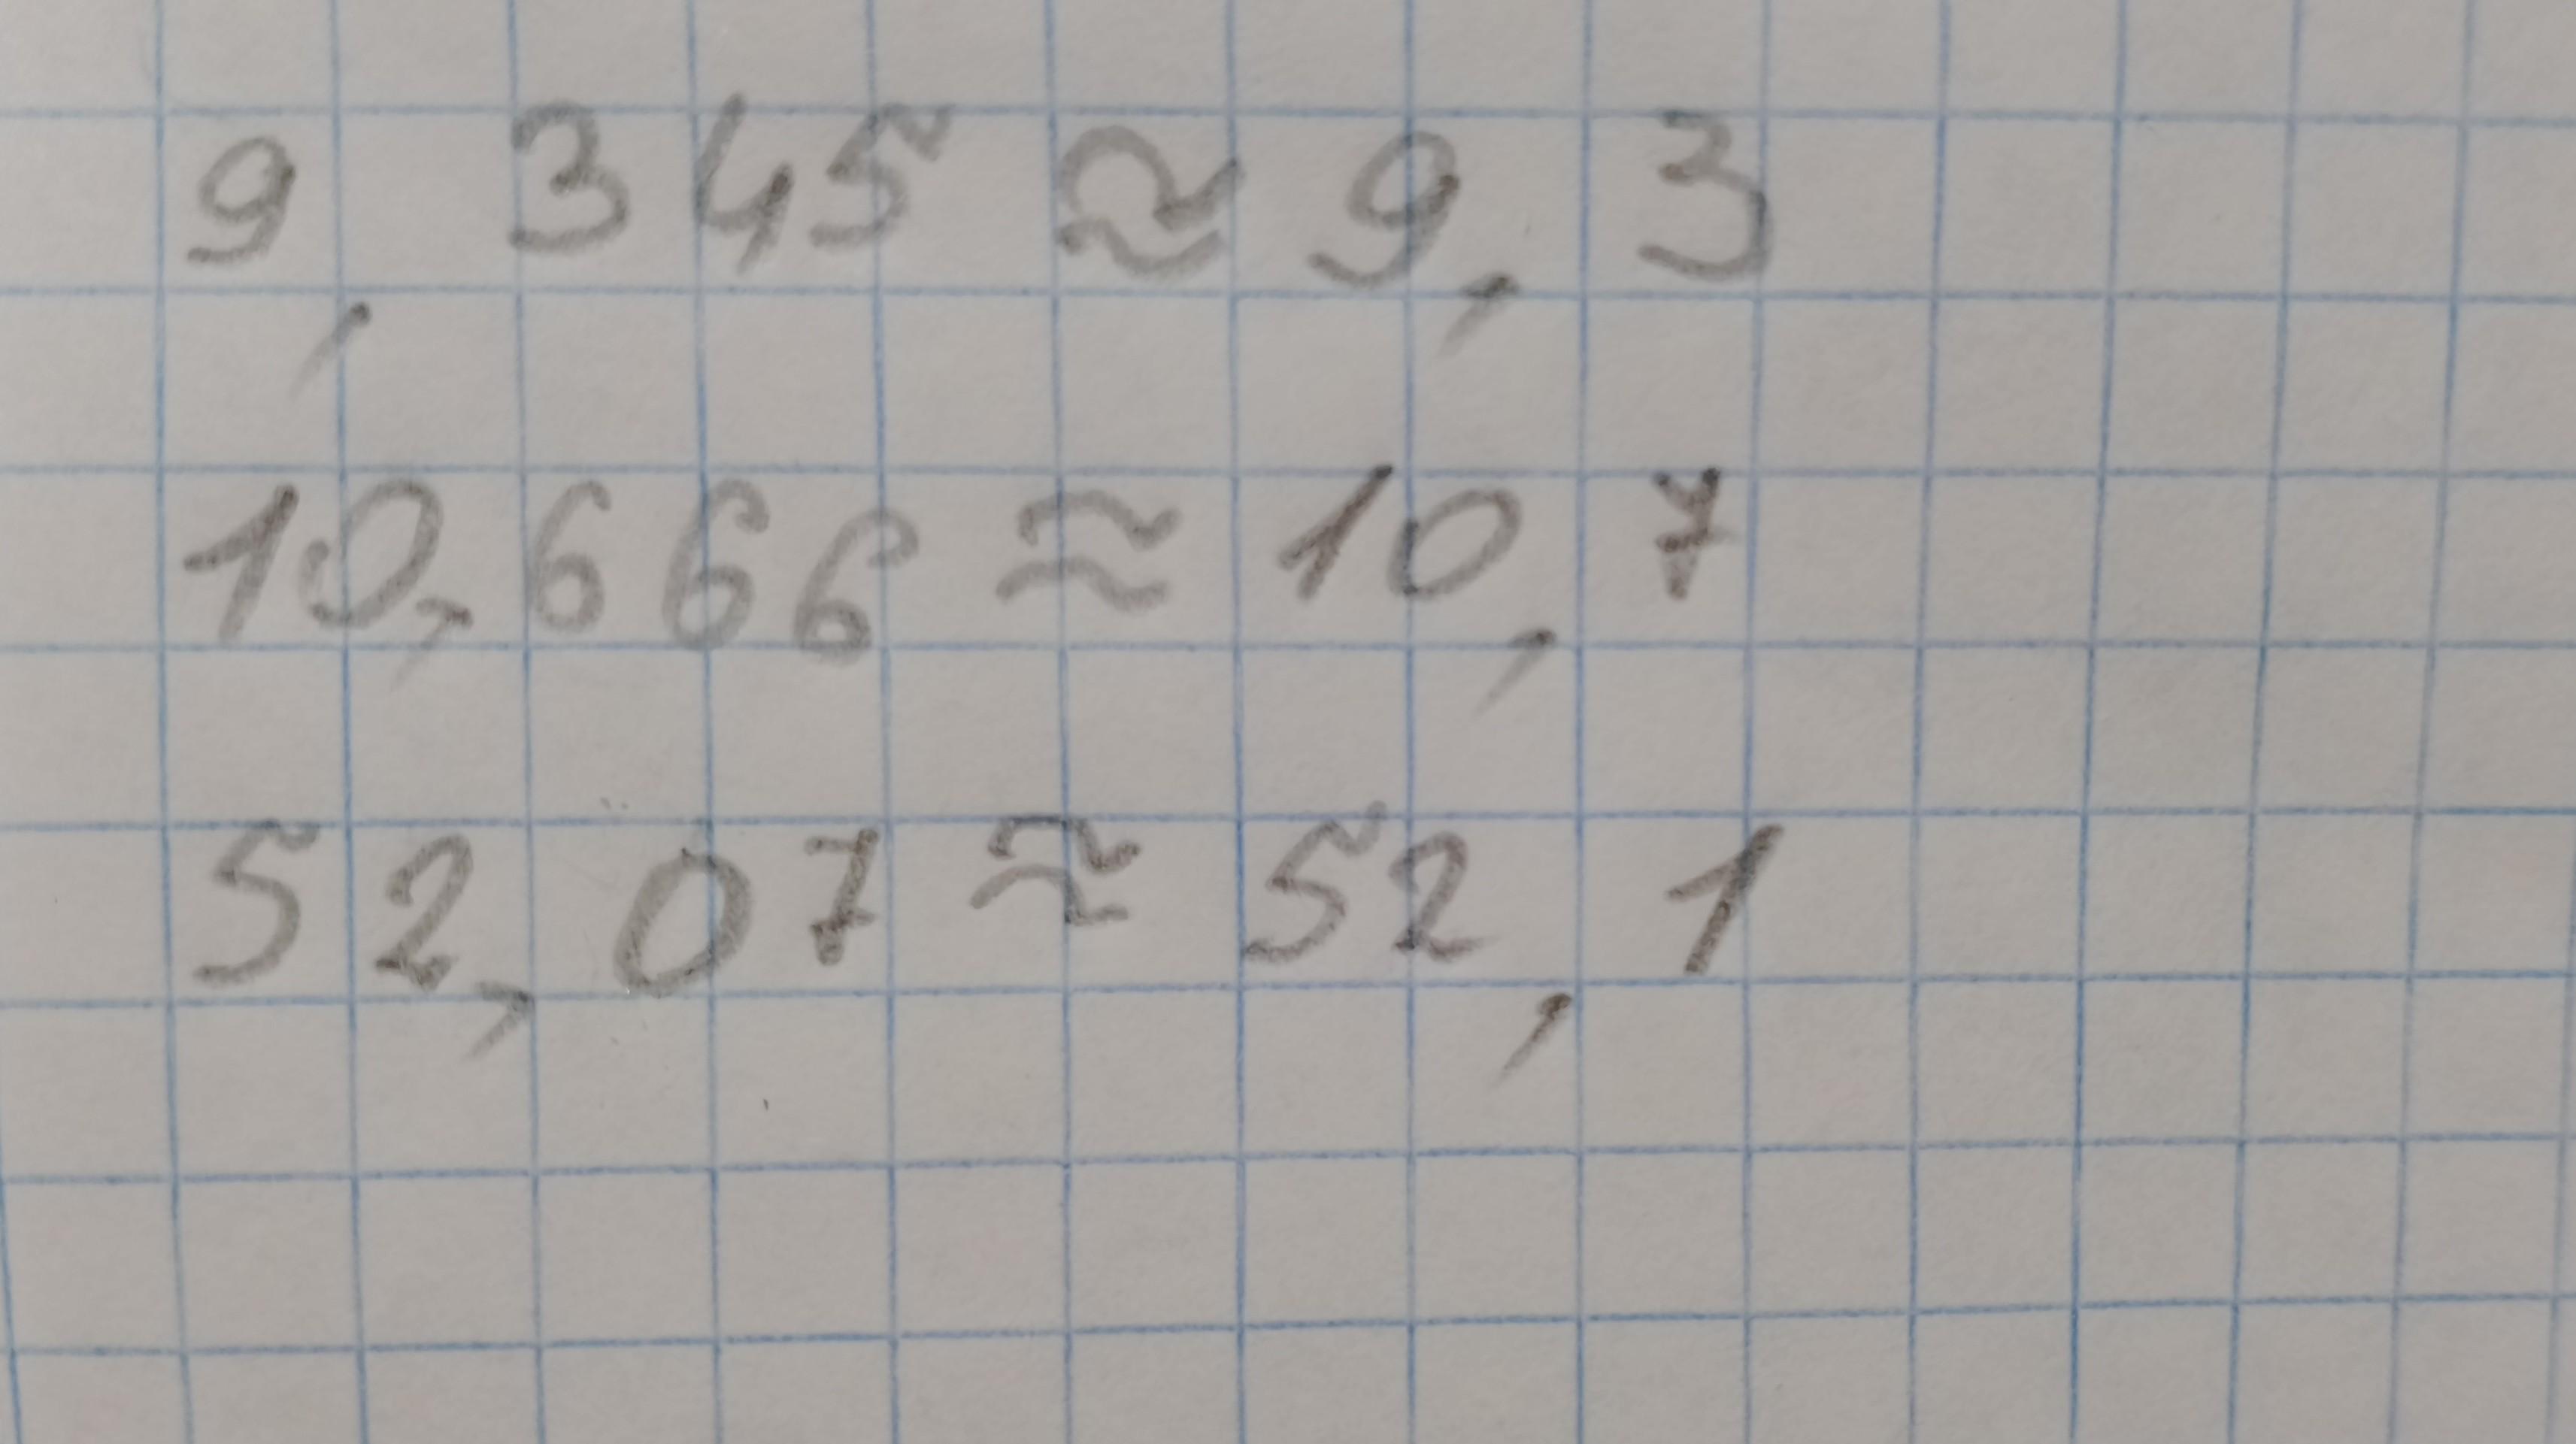 9, 345 ≈ 9, 3
10,666 ≈ 10, 7
52,07 ≈ 52, 1